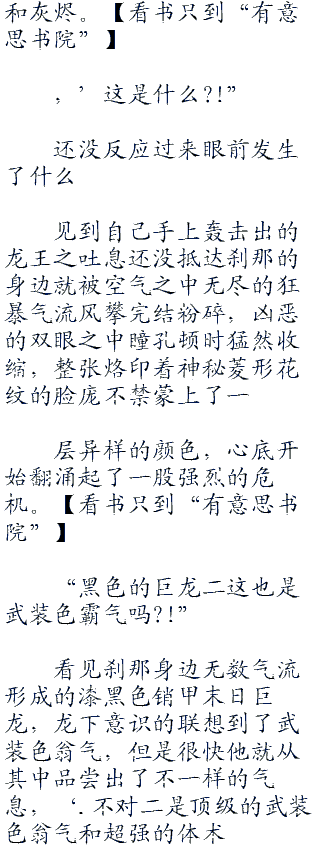 和灰烬。【看书只到“有意
思书院”】
，’这是什么?!”
还没反应过来眼前发生
了什么
见到自己手上轰击出的
龙王之吐息还没抵达刹那的
身边就被空气之中无尽的狂
暴气流风攀完结粉碎，凶恶
的双眼之中瞳孔顿时猛然收
缩，整张烙印着神秘菱形花
纹的脸庞不禁蒙上了一
层异样的颜色，心底开
始翻涌起了一股强烈的危
机。【看书只到“有意思书
院”】
“黑色的巨龙二这也是
武装色霸气吗?!”
看见刹那身边无数气流
形成的漆黑色销甲末日巨
龙，龙下意识的联想到了武
装色翁气，但是很快他就从
其中品尝出了不一样的气
息，‘.不对二是顶级的武装
色翁气和超强的体术